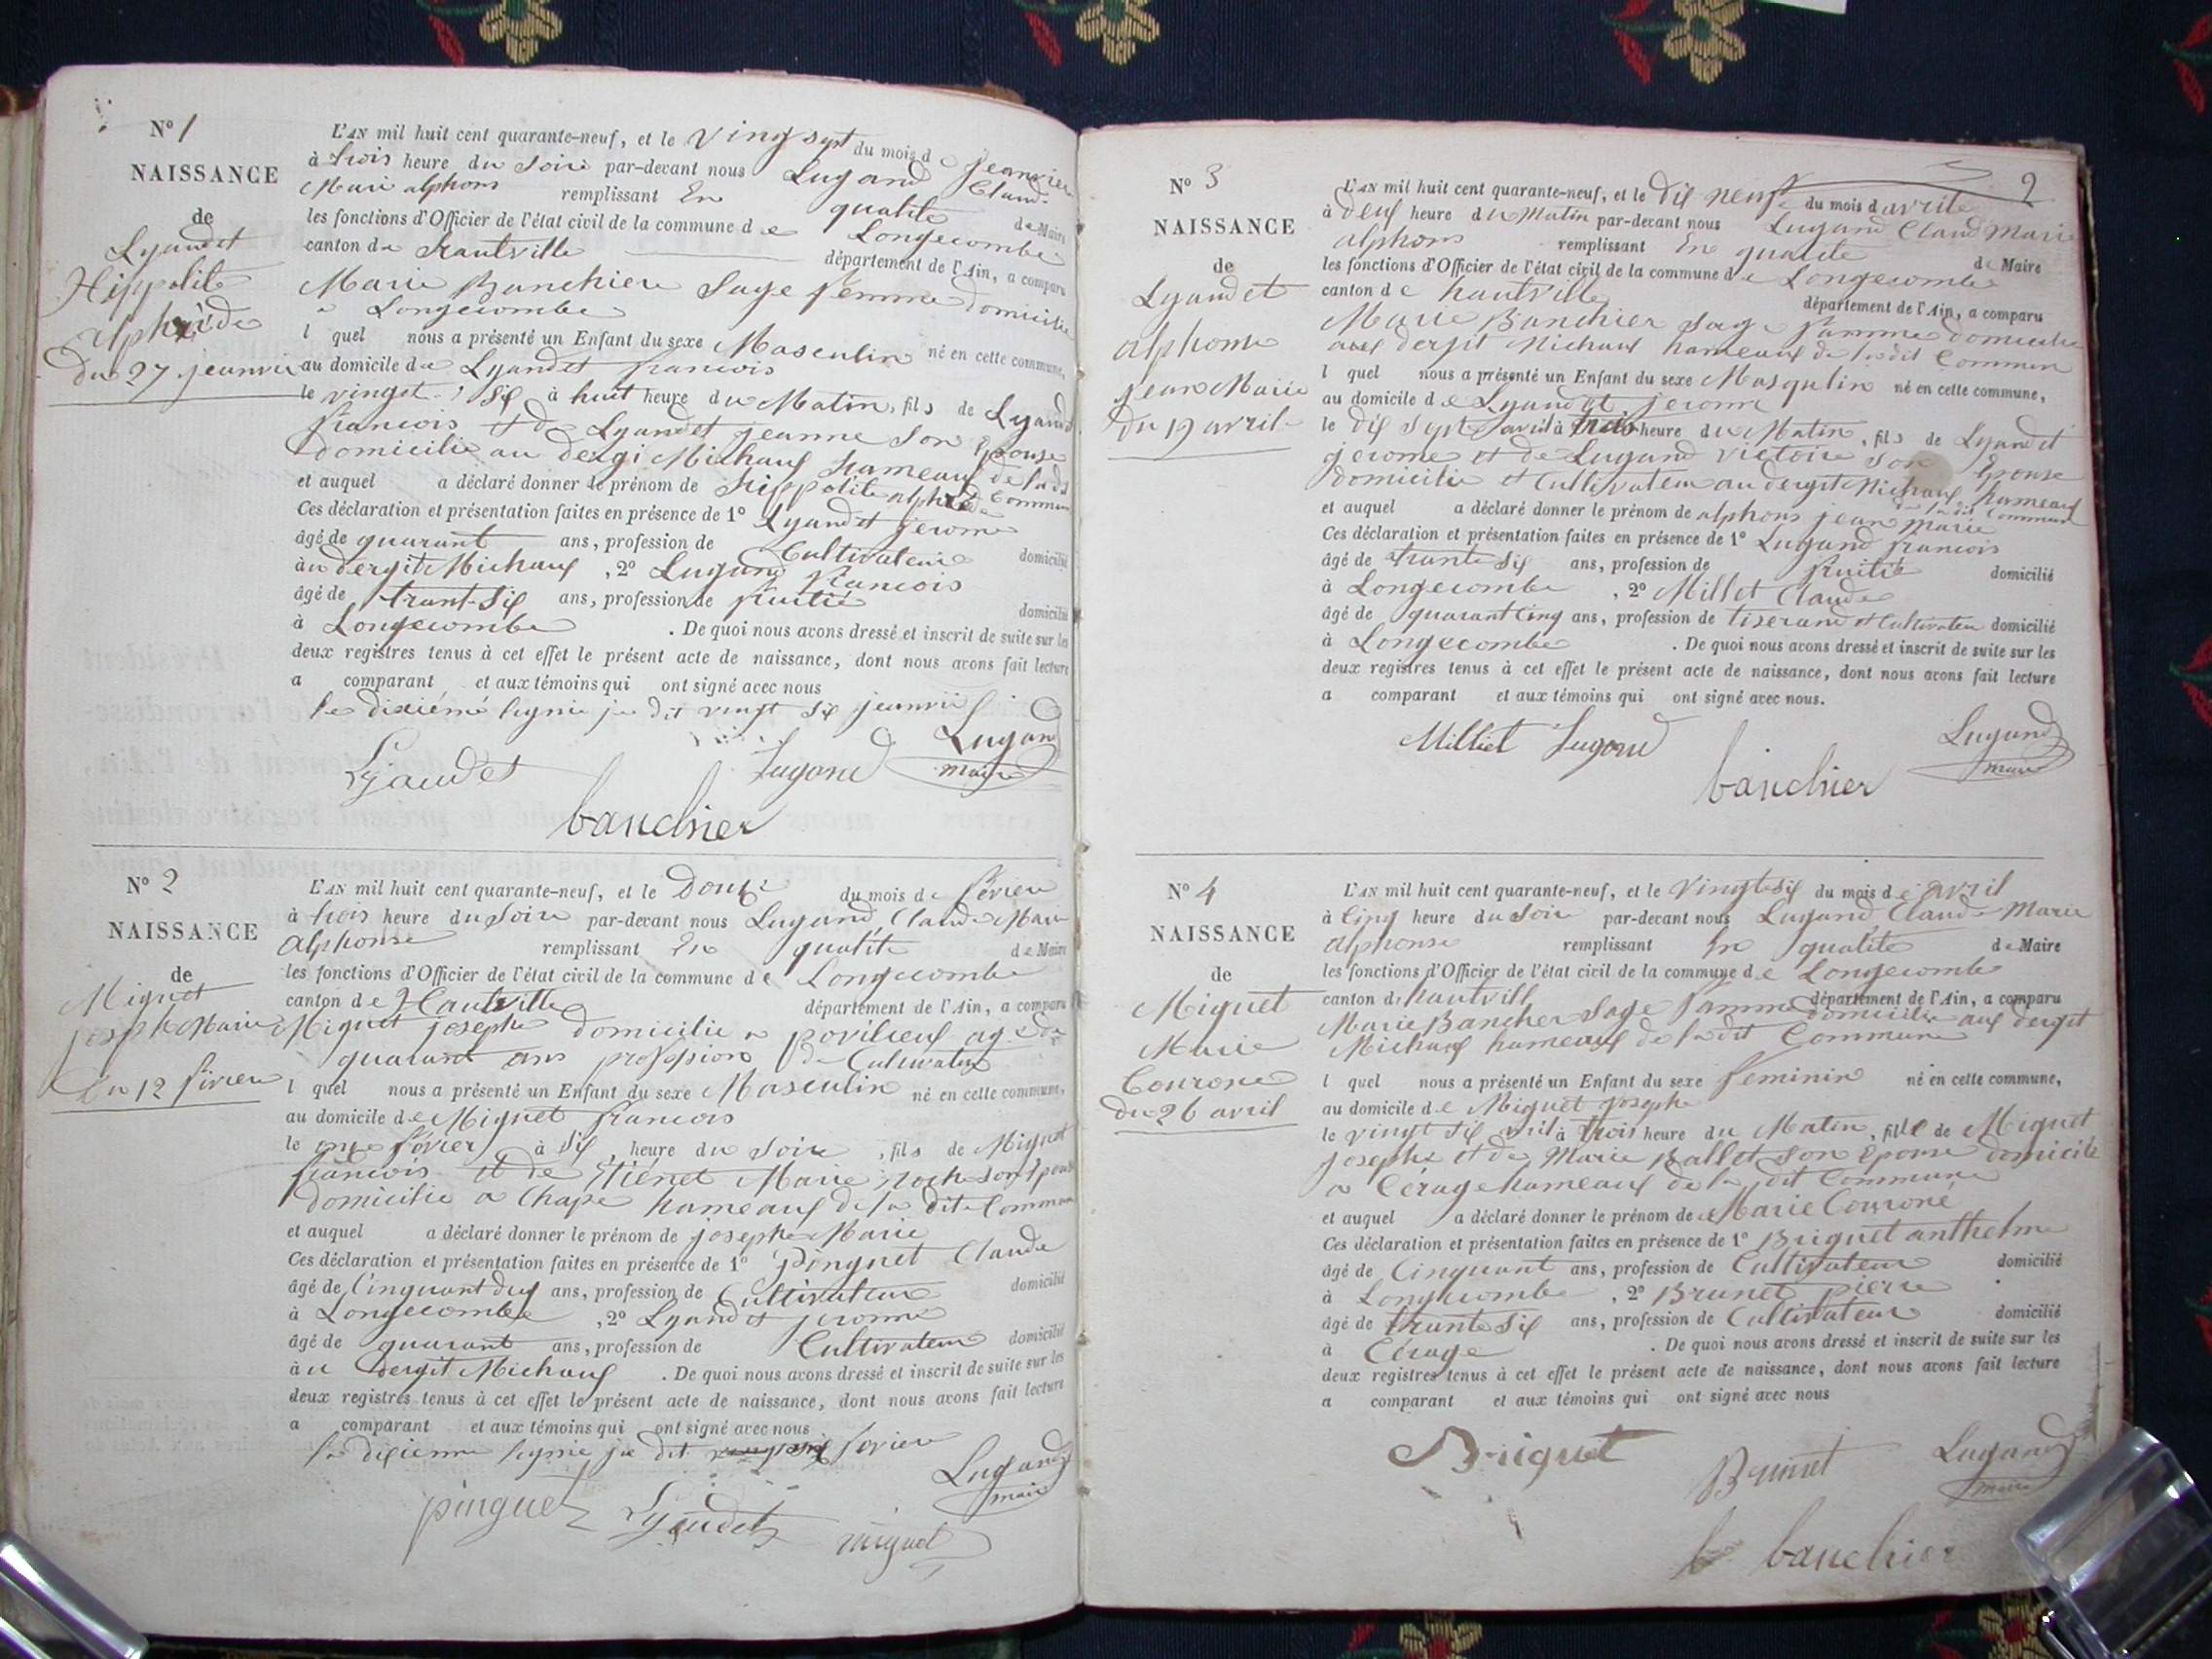 N° 1
NAISSANCE
de
Lyaudet
Hippolite
alphréde
du 27 jeanvier
L'AN mil huit cent quarante-neuf, et le vingt sept du mois de jeanvier
à trois heure du soire par-devant nous Lugand Claude
Marie alphons remplissant En qualité de Maire
les fonctions d'Officier de l'état civil de la commune de Longecombe
canton de hautville département de l'Ain, a comparu
Marie Banchier Sage femme domicilié
a Longecombe
l quel nous a présenté un Enfant du sexe Masculin né en cette commune,
au domicile de Lyaudet francois
le vingt six à huit heure du Matin, fils de Lyaudet
francois et de Lyaudet jeanne son Epouse
domicilié au dergi Michaux hameaux de ladit Commune
et auquel a déclaré donner le prénom de hippolite alphréde
Ces déclaration et présentation faites en présence de 1° Lyaudet jerome
âgé de quarant ans, profession de Cultivateur domicilié
àu dergit Michaux, 2° Lugand francois
âgé de trant-six ans, profession de fruitié domicilié
à Longecombe. De quoi nous avons dressé et inscrit de suite sur les
deux registres tenus à cet effet le présent acte de naissance, dont nous avons fait lecture
a comparant et aux témoins qui ont signé avec nous
le dixiémé lignie je dit vingt six jeanvié
Lyaudet Lugand Lugand
maire
banchier
N° 2
NAISSANCE
de
Miguet
joseph Marie
du 12 févrieu
L'AN mil huit cent quarante-neuf, et le Douze du mois de févrieu
à trois heure du soire par-devant nous Lugand Claude Marie
alphonse remplissant En qualité de Maire
les fonctions d'Officier de l'état civil de la commune de Longecombe
canton de Hautville département de l'Ain, a comparu
Miguet joseph domicilié a
quarant ans profession de Cultivateur
l quel nous a présenté un Enfant du sexe Masculin né en cette commune,
au domicile de Miguet francois
le onze février à six heure du soire, fils de Miguet
francois et de Marie
domicilié a Chape hameaux de la dite Commune
et auquel a déclaré donner le prénom de joseph Marie
Ces déclaration et présentation faites en présence de 1° pinguet Claude
âgé de Cinquant deux ans, profession de Cultivateur domicilié
à Longecombe, 2° Lyaudet jerome
âgé de quarant ans, profession de Cultivateur domicilié
àu dergit Michaux. De quoi nous avons dressé et inscrit de suite sur les
deux registres tenus à cet effet le présent acte de naissance, dont nous avons fait lecture
a comparant et aux témoins qui ont signé avec nous
la dixienne lignie je dit fevrieu
pinguet Lyaudet miguet Lugand
maire
2
N° 3
NAISSANCE
de
Lyaudet
alphonse
jean Marie
du 19 avril
L'AN mil huit cent quarante-neuf, et le dix neuf du mois d avrile
à deux heure du Matin par-devant nous Lugand Claud Marie
alphons remplissant En qualité de Maire
les fonctions d'Officier de l'état civil de la commune de Longecombe
canton de hautville département de l'Ain, a comparu
Marie Banchier Sage famme domicilié
aux dergit Michaux hameaux de ladit Commun
l quel nous a présenté un Enfant du sexe Masqulin né en cette commune,
au domicile de Lyaudet jerome
le dix sept avril à trois heure du Matin, fils de Lyaudet
jerome et de Lugand victoire son Epouse
domicilié et Cultivateur au dergit Michaux hameaux
de ladit Commun
et auquel a déclaré donner le prénom de alphons jean Marie
Ces déclaration et présentation faites en présence de 1° Lugand francois
âgé de trante six ans, profession de fruitié domicilié
à Longecombe, 2° Millet Claude
âgé de quarant Cinq ans, profession de tiserand et Cultivateur domicilié
à Longecombe. De quoi nous avons dressé et inscrit de suite sur les
deux registres tenus à cet effet le présent acte de naissance, dont nous avons fait lecture
a comparant et aux témoins qui ont signé avec nous.
Milliet Lugand Lugand
maire
banchier
N° 4
NAISSANCE
de
Miguet
Marie
Courone
du 26 avril
L'AN mil huit cent quarante-neuf, et le vingt six du mois de avril
à Cinq heure du soire par-devant nous Lugand Claude Marie
alphonse remplissant En qualité de Maire
les fonctions d'Officier de l'état civil de la commune de Longecombe
canton de hautvill département de l'Ain, a comparu
Marie Bancher Sage famme domicilié aux dergit
Michaux hameaux de ladit Commune
l quel nous a présenté un Enfant du sexe feminin né en cette commune,
au domicile de Miguet joseph
le vingt six avril à trois heure du Matin, fille de Miguet
joseph et de Marie Ballet son Epouse domicilié
a Cérage hameaux de la dit Commune
et auquel a déclaré donner le prénom de Marie Couroné
Ces déclaration et présentation faites en présence de 1° Briguet anthelme
âgé de Cinquant ans, profession de Cultivateur domicilié
à Longecombe, 2° Brunet pierre
âgé de trante six ans, profession de Cultivateur domicilié
à Cérage. De quoi nous avons dressé et inscrit de suite sur les
deux registres tenus à cet effet le présent acte de naissance, dont nous avons fait lecture
a comparant et aux témoins qui ont signé avec nous
Briguet Brunet Lugand
maire
banchier